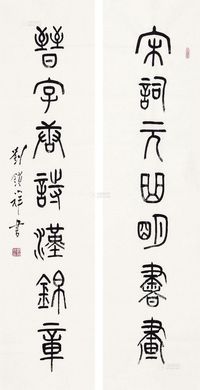 宋詞元曲明書畫
晉字唐詩漢錦章
劉祥書